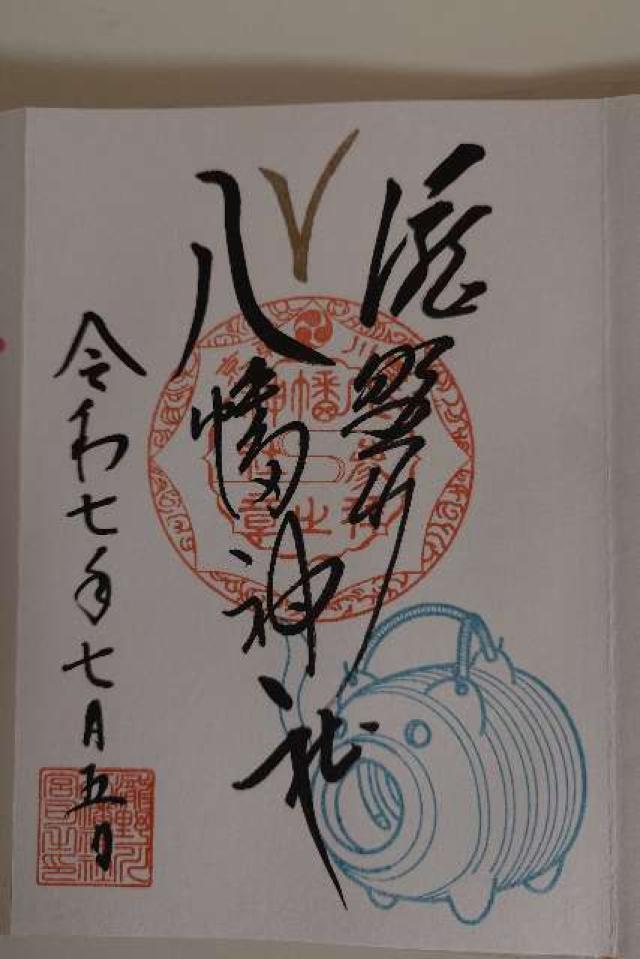 滝野川
八幡神社
令和七年七月五日